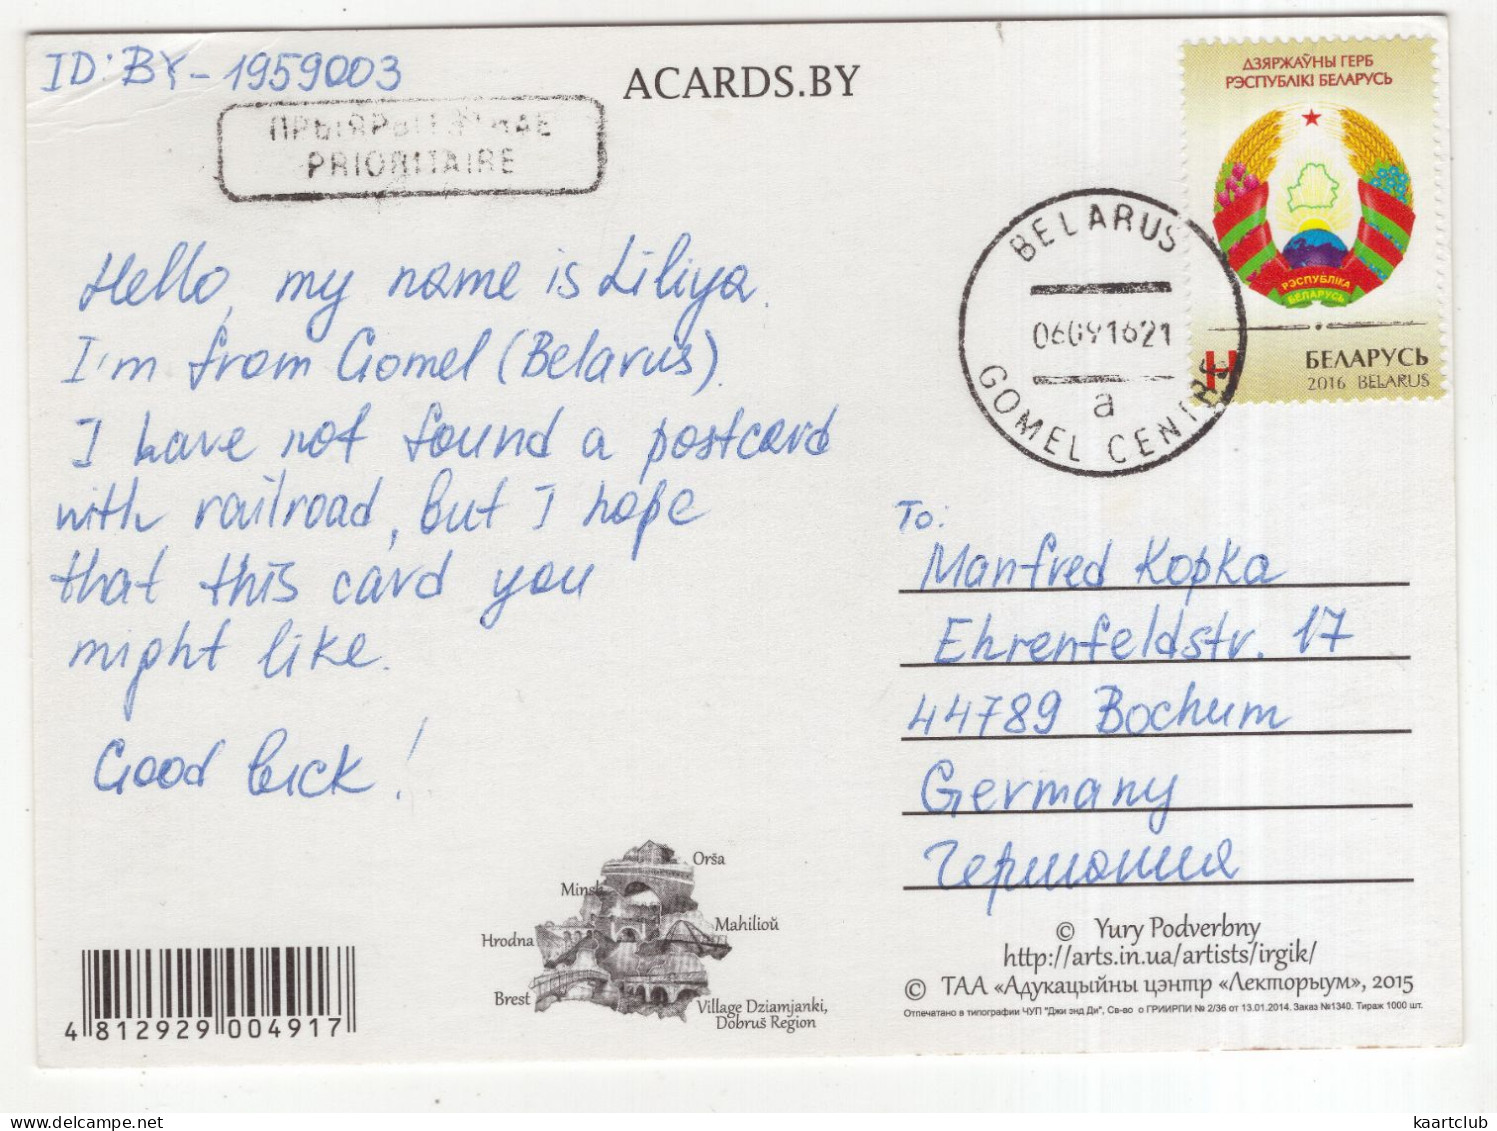 ID: BY-1959003
ACARDS.BY
ДЗЯРЖАЎНЫ ГЕРБ
РЭСПУБЛІКІ БЕЛАРУСЬ
PRIORITAIRE
BELARUS
GOMEL CENTRE
a
РЭСПУБЛІКА
БЕЛАРУСЬ
H
БЕЛАРУСЬ
2016 BELARUS
Hello, my name is Liliya.
I'm from Gomel (Belarus).
I have not found a postcard
with railroad, but I hope
that this card you
might like.
Good luck!
To:
Manfred Kopka
Ehrenfeldstr. 17
44789 Bochum
Germany
Германия
Orša
Minsk
Mahilioŭ
Hrodna
Brest
Village Dziamjanki,
Dobruš Region
4 812929 004917
© Yury Podverbny
http://arts.in.ua/artists/irgik/
© ТАА «Адукацыйны цэнтр «Лекторыум», 2015
Отпечатано в типографии ЧУП "Джи энд Ди", Св-во о ГРИИРПИ № 2/36 от 13.01.2014. Заказ №1340. Тираж 1000 шт.
kaartclub